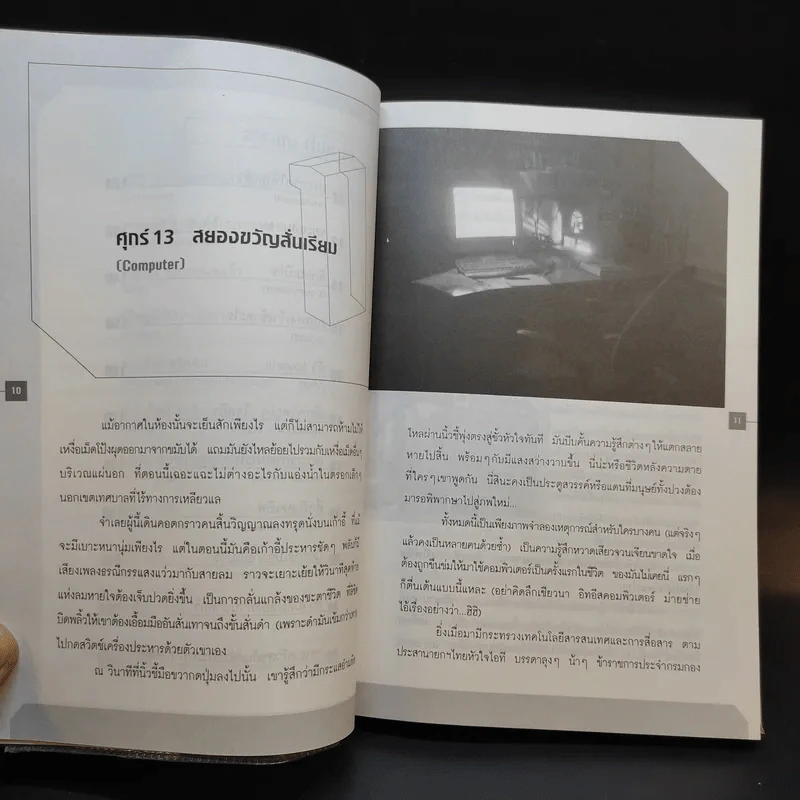 ศุกร์ 13 สยองขวัญสั่นเรียม
(Computer)
10
แม้อากาศในห้องนั้นจะเย็นสักเพียงไร แต่ก็ไม่สามารถห้ามไม่ให้
เหงื่อเม็ดโป้งผุดออกมาจากขมับได้ แถมมันยังไหลย้อยไปรวมกับเหงื่อเม็ดอื่นๆ
บริเวณแผ่นอก ที่ตอนนี้เฉอะแฉะไม่ต่างอะไรกับแอ่งน้ำในตรอกเล็กๆ
นอกเขตเทศบาลที่ไร้ทางการเหลียวแล
จำเลยผู้นี้เดินคอตกราวคนสิ้นวิญญาณลงทรุดนั่งบนเก้าอี้ ที่แม้
จะมีเบาะหนานุ่มเพียงไร แต่ในตอนนี้มันคือเก้าอี้ประหารชัดๆ พลันได้
เสียงเพลงธรณีกรรแสงแว่วมากับสายลม ราวจะเยาะเย้ยให้วินาทีสุดท้าย
แห่งลมหายใจต้องเจ็บปวดยิ่งขึ้น เป็นการกลั่นแกล้งของชะตาชีวิต ที่ลิขิต
บิดพลิ้วให้เขาต้องเอื้อมมืออันสั่นเทาจนถึงขั้นสั่นดำ (เพราะดำมันเข้มกว่าเทา)
ไปกดสวิตช์เครื่องประหารด้วยตัวเขาเอง
ณ วินาทีที่นิ้วชี้มือขวากดปุ่มลงไปนั้น เขารู้สึกว่ามีกระแสอำมหิต
11
ไหลผ่านนิ้วชี้พุ่งตรงสู่ขั้วหัวใจทันที มันบีบคั้นความรู้สึกต่างๆ ให้แตกสลาย
หายไปสิ้น พร้อมๆ กับมีแสงสว่างวาบขึ้น นี่น่ะหรือชีวิตหลังความตาย
ที่ใครๆ เขาพูดกัน นี่สินะคงเป็นประตูสวรรค์หรือแดนที่มนุษย์ทั้งปวงต้อง
มารอพิพากษาไปสู่ภพใหม่...
ทั้งหมดนี้เป็นเพียงภาพจำลองเหตุการณ์สำหรับใครบางคน (แต่จริงๆ
แล้วคงเป็นหลายคนด้วยซ้ำ) เป็นความรู้สึกหวาดเสียวจวนเจียนขาดใจ เมื่อ
ต้องถูกขืนข่มให้มาใช้คอมพิวเตอร์เป็นครั้งแรกในชีวิต ของมันไม่เคยนี่ แรกๆ
ก็ตื่นเต้นแบบนี้แหละ (อย่าคิดลึกเชียวนา อิทอีสคอมพิวเตอร์ ม่ายช่าย
ไอ้เรื่องอย่างว่า...ฮิฮิ)
ยิ่งเมื่อมามีกระทรวงเทคโนโลยีสารสนเทศและการสื่อสาร ตาม
ประสานายกฯไทยหัวใจไอที บรรดาลุงๆ น้าๆ ข้าราชการประจำกรมกอง